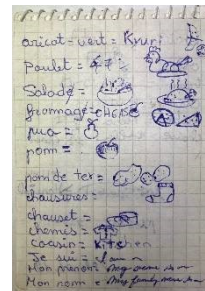 aricot-vert = Kruri
Poulet =
Salade =
fromage = CHEISE
pua =
pom =
pom de ter =
chausures =
chauset =
chemis =
coasin = Kitchen
Je sui = I am
Mon prenom = My name is
Mon nom = My family name is